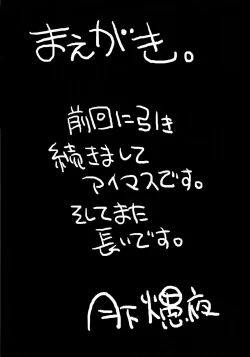 まえがき。
前回に引き
続きまして
アイマスです。
そしてまた
長いです。
月下燻夜